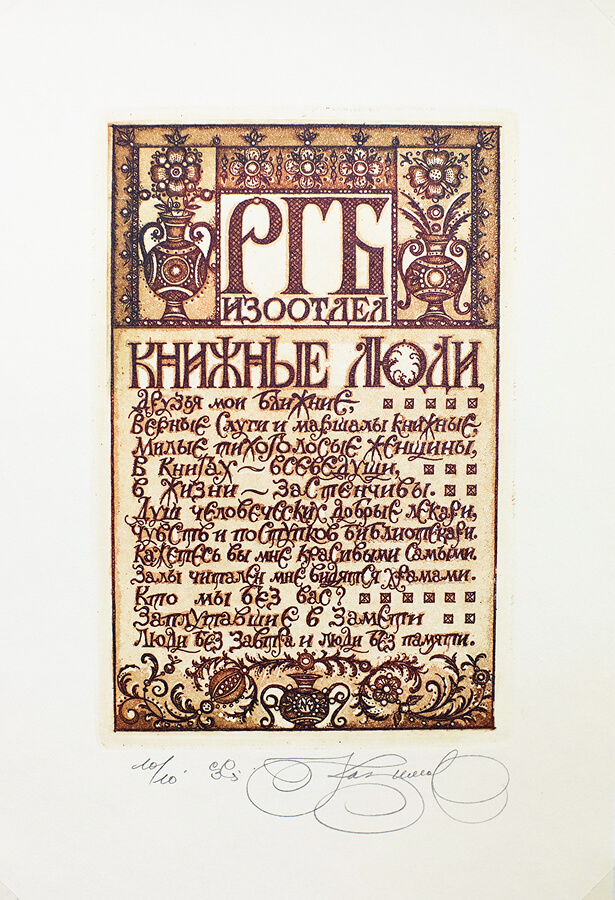 РГБ
ИЗООТДЕЛ
КНИЖНЫЕ ЛЮДИ
Друзья мои ближние,
Верные слуги и маршалы книжные,
Милые тихоголосые женщины,
В книгах ~ всеведущи,
В жизни ~ застенчивы.
Душ человеческих добрые лекари,
Чувств и поступков библиотекари.
Кажетесь вы мне красивыми самыми.
Залы читален мне видятся храмами.
Кто мы без вас?
Заплутавшие в замети
Люди без завтра и люди без памяти.
10/10